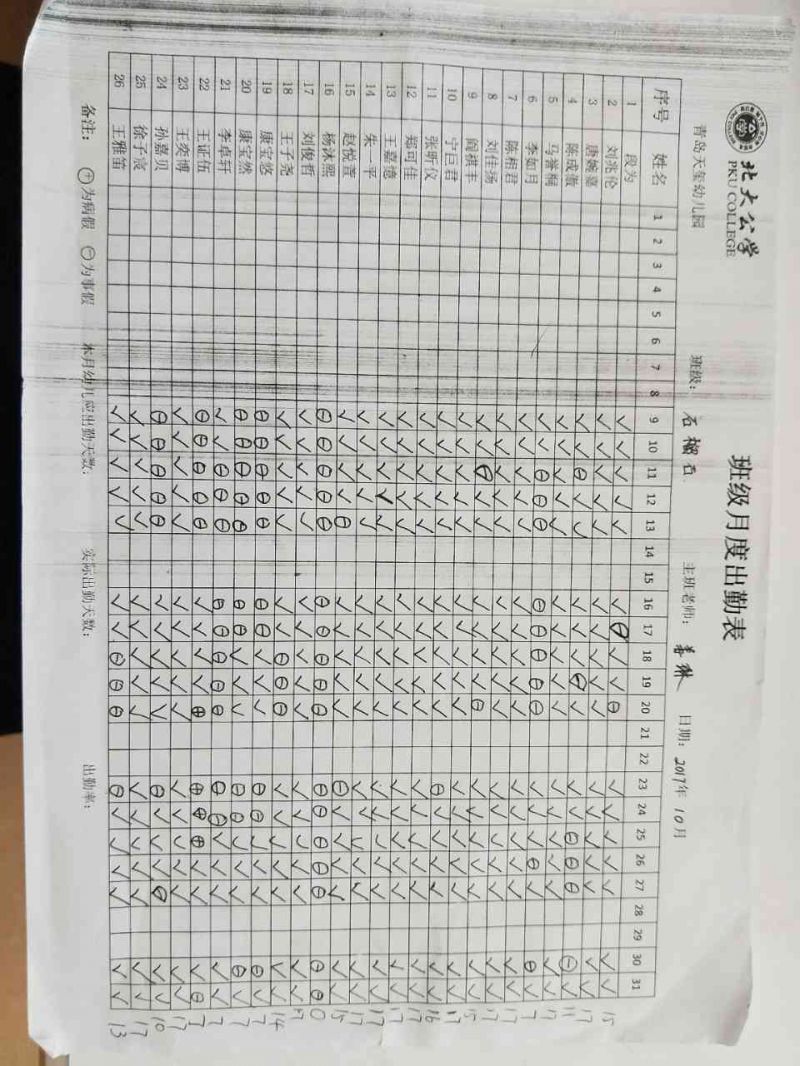 北大公学
PKU COLLEGE
班级月度出勤表
青岛天玺幼儿园 班级: 石榴石 主班老师: 姜琳 日期: 2017年 10月
序号 姓名 1 2 3 4 5 6 7 8 9 10 11 12 13 14 15 16 17 18 19 20 21 22 23 24 25 26 27 28 29 30 31
1 段为 15
2 刘兆伦 17
3 唐婉嘉 11
4 陈成傲 17
5 马誉桐 7
6 李如月 17
7 陈榕君 17
8 刘佳扬 15
9 阎祺丰 17
10 宁巨君 16
11 张昕仪 17
12 郑可佳 17
13 王嘉德 17
14 朱一平 17
15 赵悦萱 15
16 杨沐熙 0
17 刘俊哲 17
18 王子尧 14
19 康宝悠 7
20 康宝然 7
21 李卓轩 7
22 王证伍 7
23 王奕博 17
24 孙嘉贝 10
25 徐子宸 17
26 王雅笛 13
备注: ⊕为病假 ⊖为事假 本月幼儿应出勤天数: 实际出勤天数: 出勤率: